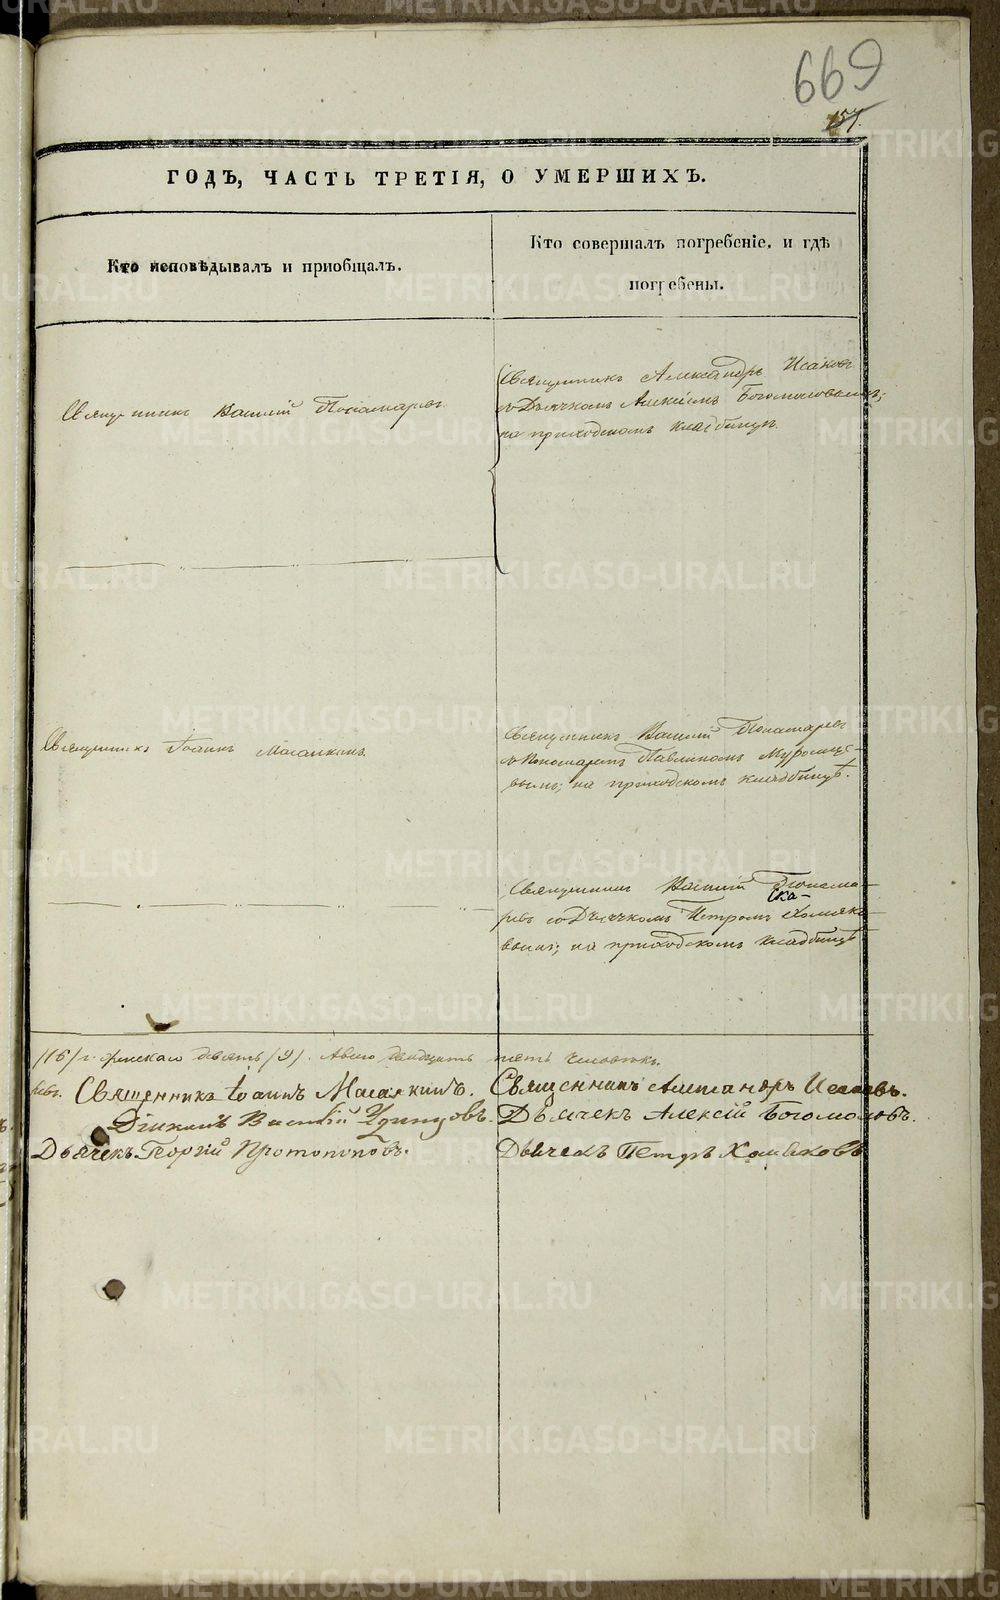 669
157.
ГОДЪ, ЧАСТЬ ТРЕТІЯ, О УМЕРШИХЪ.
Кто исповѣдывалъ и пріобщалъ.
Кто совершалъ погребеніе, и гдѣ
погребены.
Священникъ Василій Пономаревъ
Священникъ Александръ Исаковъ
съ Дьячкомъ Алексѣемъ Богомоловымъ;
на приходскомъ кладбищѣ.
Священникъ Іоаннъ Масалкинъ
Священникъ Василій Пономаревъ
съ Пономаремъ Павлиномъ Муромце-
вымъ; на приходскомъ кладбищѣ.
Священникъ Василій Понома-
ревъ со Дьячкомъ Петромъ Хомяко-
вымъ; на приходскомъ кладбищѣ
/16/ г. женскаго девять /9/. Всего двадцать пять человѣкъ.
Священникъ Іоаннъ Масалкинъ.
Священникъ Александръ Исаковъ.
Діаконъ Василій Удинцовъ.
Дьячекъ Алексій Богомоловъ.
Дьячекъ Георгій Протопоповъ.
Дьячекъ Петръ Хомяковъ
METRIKI.GASO-URAL.RU